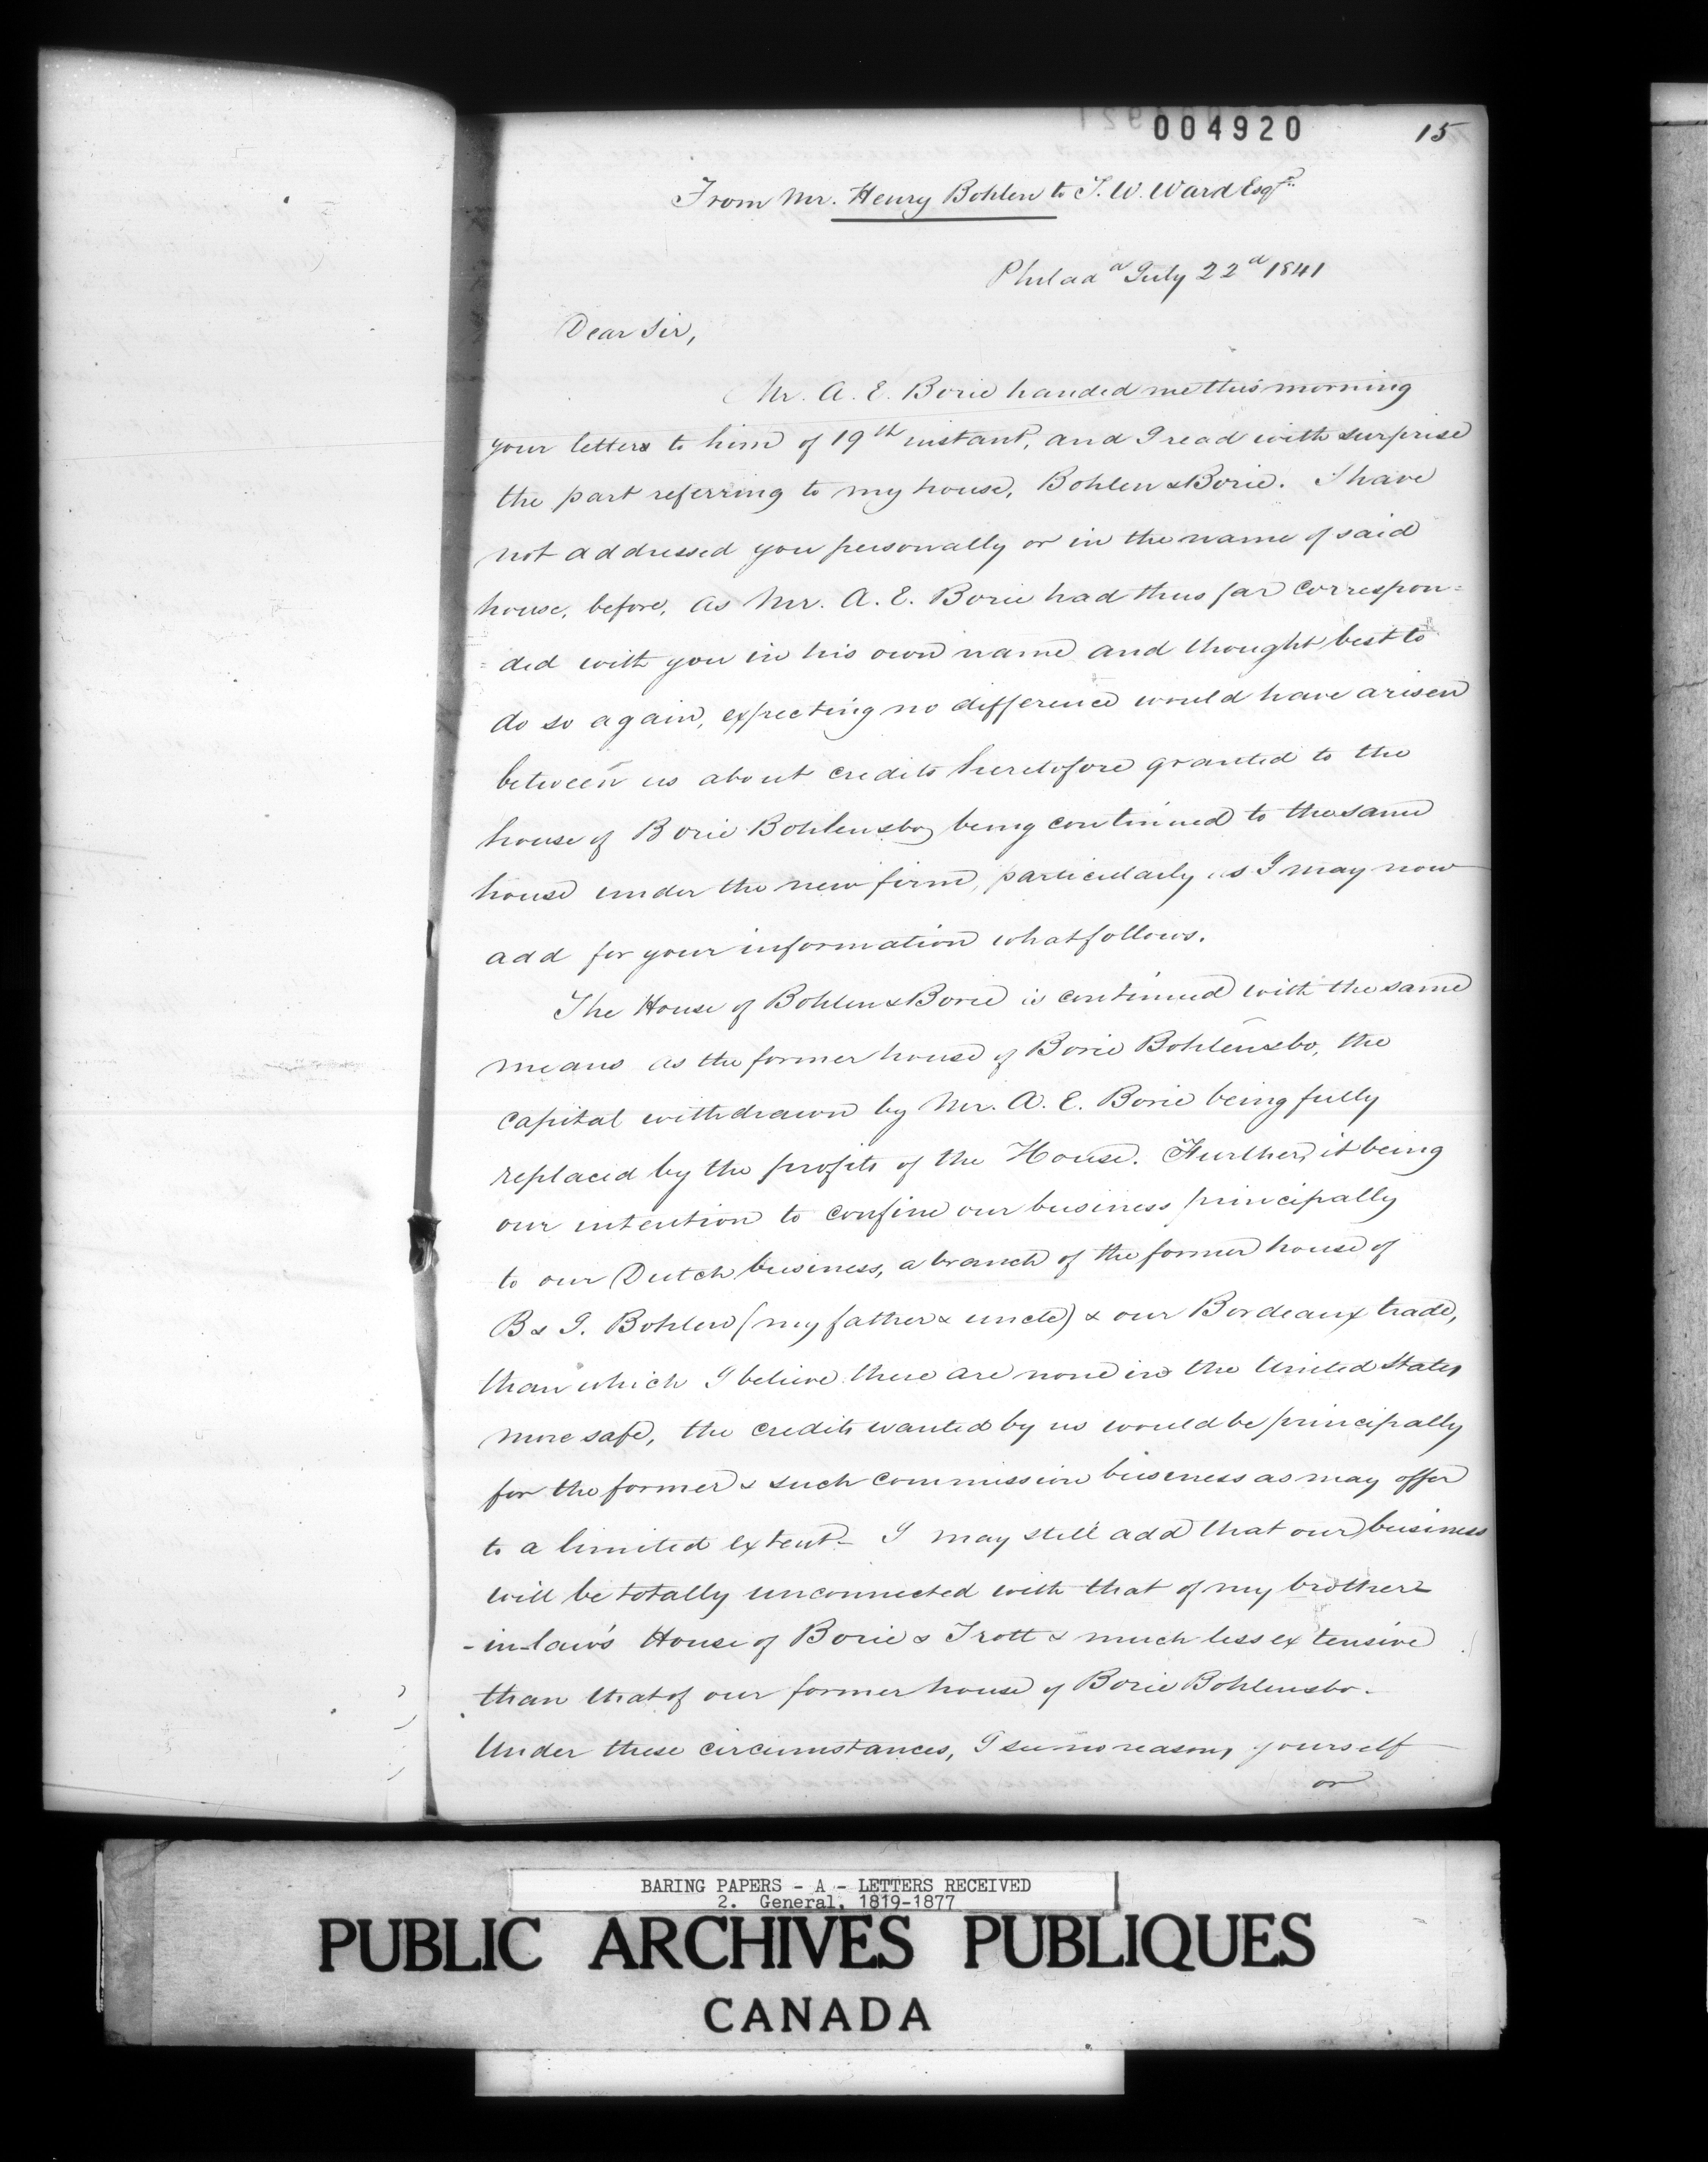 004920
15
From Mr. Henry Bohlen to T. W. Ward Esqr.
Philada July 22d 1841
Dear Sir,
Mr. A. E. Borie handed me this morning
your letters to him of 19th instant, and I read with surprise
the part referring to my house, Bohlen & Borie. I have
not addressed you personally or in the name of said
house, before, as Mr. A. E. Borie had thus far correspon=
=ded with you in his own name and thought best to
do so again, expecting no difference would have arisen
between us about credits heretofore granted to the
house of Borie Bohlen & Co, being continued to the same
house under the new firm, particularly as I may now
add for your information what follows.
The House of Bohlen & Borie is continued with the same
means as the former house of Borie Bohlen & Co, the
capital withdrawn by Mr. A. E. Borie being fully
replaced by the profits of the House. Further, it being
our intention to confine our business principally
to our Dutch business, a branch of the former house of
B & J. Bohlen (my father & uncle) & our Bordeaux trade,
than which I believe there are none in the United States
more safe, the credits wanted by us would be principally
for the former & such commission business as may offer
to a limited extent - I may still add that our business
will be totally unconnected with that of my brother-
-in-law's House of Borie & Trott & much less extensive
than that of our former house of Borie Bohlen & Co.
Under these circumstances, I see no reason, yourself
or
BARING PAPERS - A - LETTERS RECEIVED
2. General, 1819-1877
PUBLIC ARCHIVES PUBLIQUES
CANADA